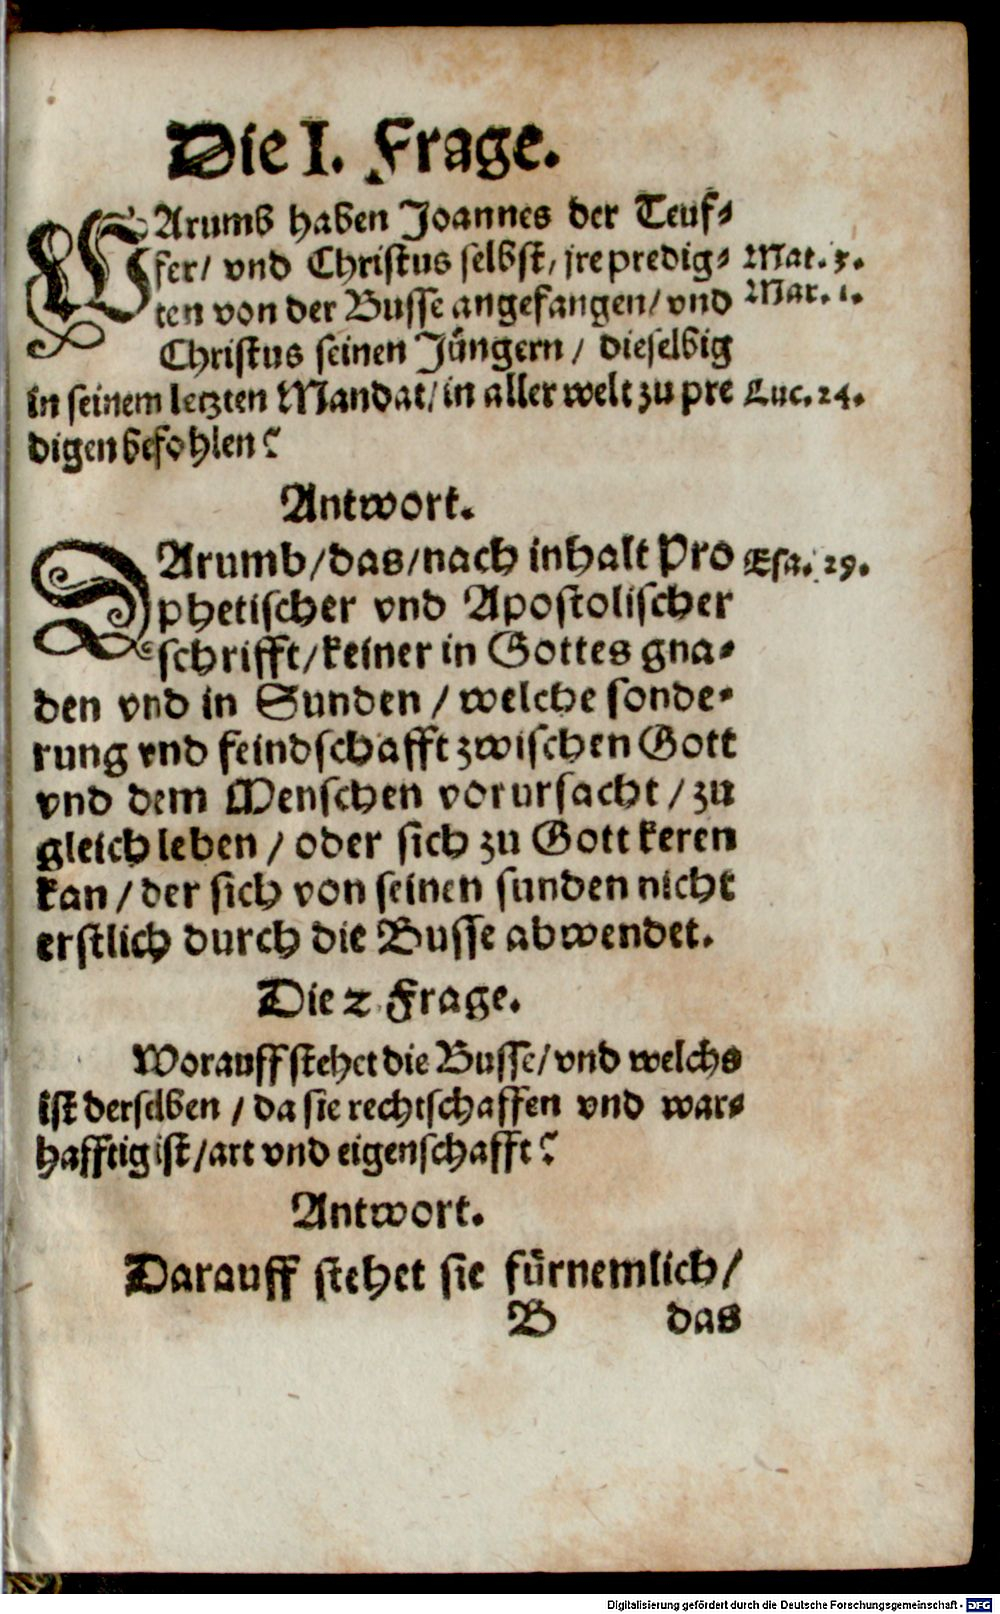 Die I. Frage.
WArumb haben Joannes der Teuf-
fer/ vnd Christus selbst, jre predig-
Mat. 3.
ten von der Busse angefangen/ vnd
Mar. 1.
Christus seinen Jüngern / dieselbig
in seinem letzten Mandat/ in aller welt zu pre
Luc. 24.
digen befohlen?
Antwort.
DArumb/das/nach inhalt Pro
Esa. 29.
phetischer vnd Apostolischer
schrifft/keiner in Gottes gna-
den vnd in Sunden / welche sonde-
rung vnd feindschafft zwischen Gott
vnd dem Menschen vorursacht / zu
gleich leben / oder sich zu Gott keren
kan / der sich von seinen sunden nicht
erstlich durch die Busse abwendet.
Die 2 Frage.
Worauff stehet die Busse/ vnd welchs
ist derselben / da sie rechtschaffen vnd war-
hafftig ist/art vnd eigenschafft?
Antwort.
Darauff stehet sie fürnemlich/
B das
Digitalisierung gefördert durch die Deutsche Forschungsgemeinschaft - DFG